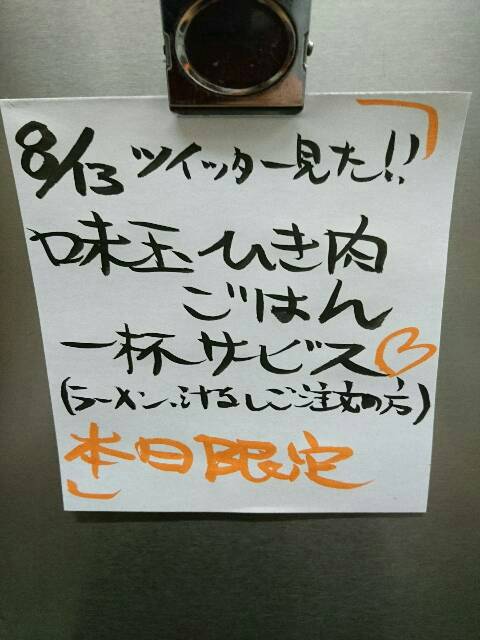 8/13 ツイッター見た!!
味玉ひき肉
ごはん
一杯サービス♡
(ラーメン、汁なしご注文の方)
本日限定